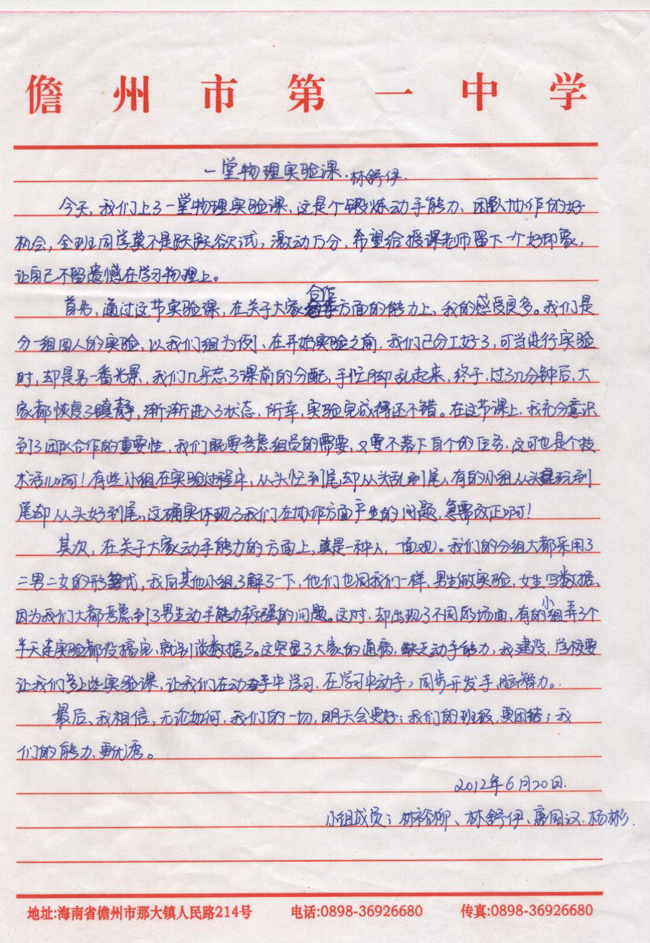 儋州市第一中学
一堂物理实验课.林舒伊.
今天,我们上了一堂物理实验课,这是个锻炼动手能力、团队协作的好
机会,全班同学莫不是跃跃欲试,激动万分,希望给授课老师留下一个好印象,
让自己不留遗憾在学习物理上。
合作
首先,通过这节实验课,在关于大家方面的能力上,我的感受良多。我们是
分一组四人的实验,以我们组为例,在开始实验之前,我们已分工好了,可当进行实验
时,却是另一番光景,我们几乎忘了课前的分配,手忙脚乱起来,终于,过了几分钟后,大
家都恢复了镇静,渐渐进入了状态,所幸,实验完成得还不错。在这节课上,我充分意识
到了团队合作的重要性,我们既要考虑组员的需要,又要不落下自个的任务,这可也是个技
术活儿啊!有些小组在实验过程中,从头忙到尾却从头乱到尾,有的小组从头玩到
尾却从头好到尾,这确实体现了我们在协作方面产生的问题,急需改正啊!
其次,在关于大家动手能力的方面上,真是一种人,一面观。我们的分组大都采用了
二男二女的形式,我向其他小组了解了一下,他们也同我们一样,男生做实验,女生写数据,
因为我们大都考虑到了男生动手能力较强的问题。这时,却出现了不同的场面,有的小组弄了个
半天连实验都没搞定,就别谈数据了。这突显了大家的通病,缺乏动手能力,我建议,学校要
让我们多上些实验课,让我们在动手中学习,在学习中动手,同步开发手、脑智力。
最后,我相信,无论如何,我们的一切,明天会更好;我们的班级,更团结;我
们的能力,更优秀。
2012年6月20日.
小组成员:林裕柳、林舒伊、唐国汉、杨彬.
地址:海南省儋州市那大镇人民路214号 电话:0898-36926680 传真:0898-36926680